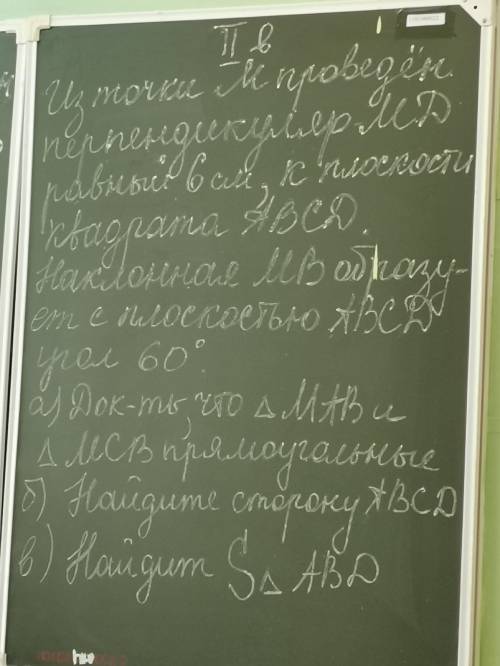 II в
Из точки М проведён
перпендикуляр МD
равный 6 см, к плоскости
квадрата ABCD.
Наклонная МВ образу-
ет с плоскостью ABCD
угол 60°.
а) Док-ть, что △ МАВ и
△ МСВ прямоугольные
б) Найдите сторону ABCD
в) Найдит S△ ABD